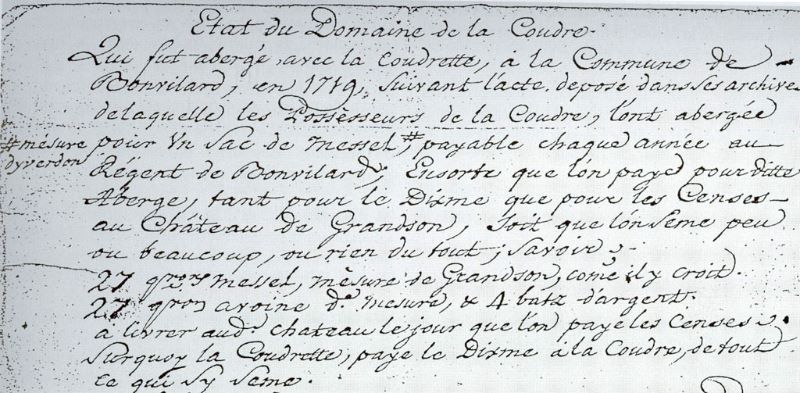 Etat du Domaine de la Coudre.
Qui fut abergé avec la Coudrette, à la Commune de
Bonvilard, en 1719, suivant l'acte, deposé dans ses archives
de laquelle les Possèsseurs de la Coudre, l'ont abergée
pour Un Sac de messel,# payable chaque année au
#mesure
d'yverdon
Régent de Bonvilard, Ensorte que l'on paye pour ditte
Aberge, tant pour le Dixme que pour les Censes
au Château de Grandson, soit que l'on sème peu
ou beaucoup, ou rien du tout; savoir;
27 qrons messel, mesure de Grandson, come il y croit.
27 qrons avoine de. mesure, & 4 batz d'argent.
à livrer aud. chateau le jour que l'on paye les Censes.
Surquoy la Coudrette, paye le Dixme à la Coudre, de tout
ce qui sy seme.